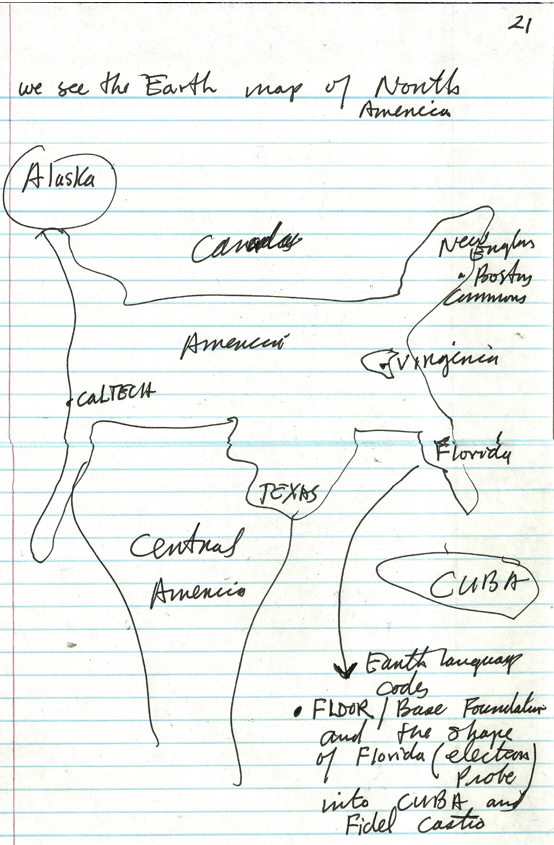 21
we see the Earth map of North
America
Alaska
Canada
New
England
Boston
Commons
America
Virginia
CALTECH
Florida
TEXAS
Central
America
CUBA
Earth language
codes
• FLOOR / Base Foundation
and the shape
of Florida (electron
Probe)
into CUBA and
Fidel Castro